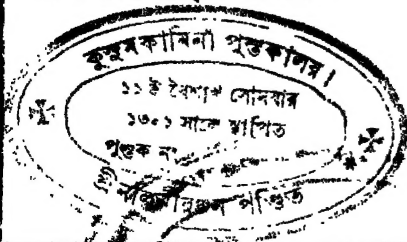 কুসুমকামিনী পুস্তকালয়।
১১ই বৈশাখ সোমবার
১৩০১ সালে স্থাপিত
পুস্তক নং
পণ্ডিত